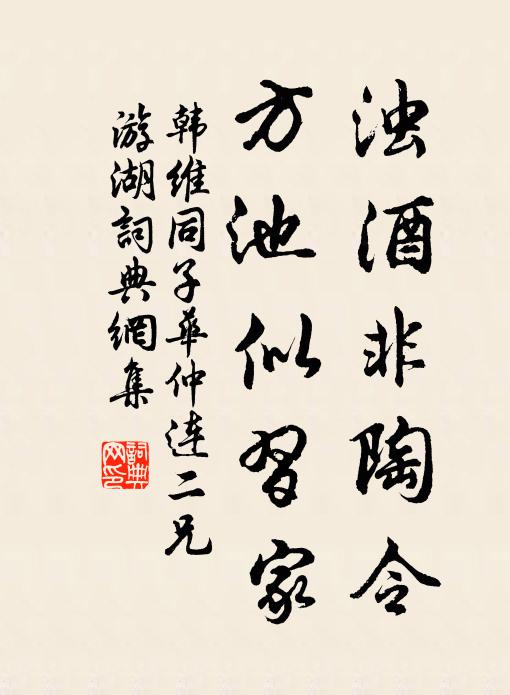 浊酒非陶令
方池似习家
韩维同子华仲连二兄
游湖词典网集
词典网印